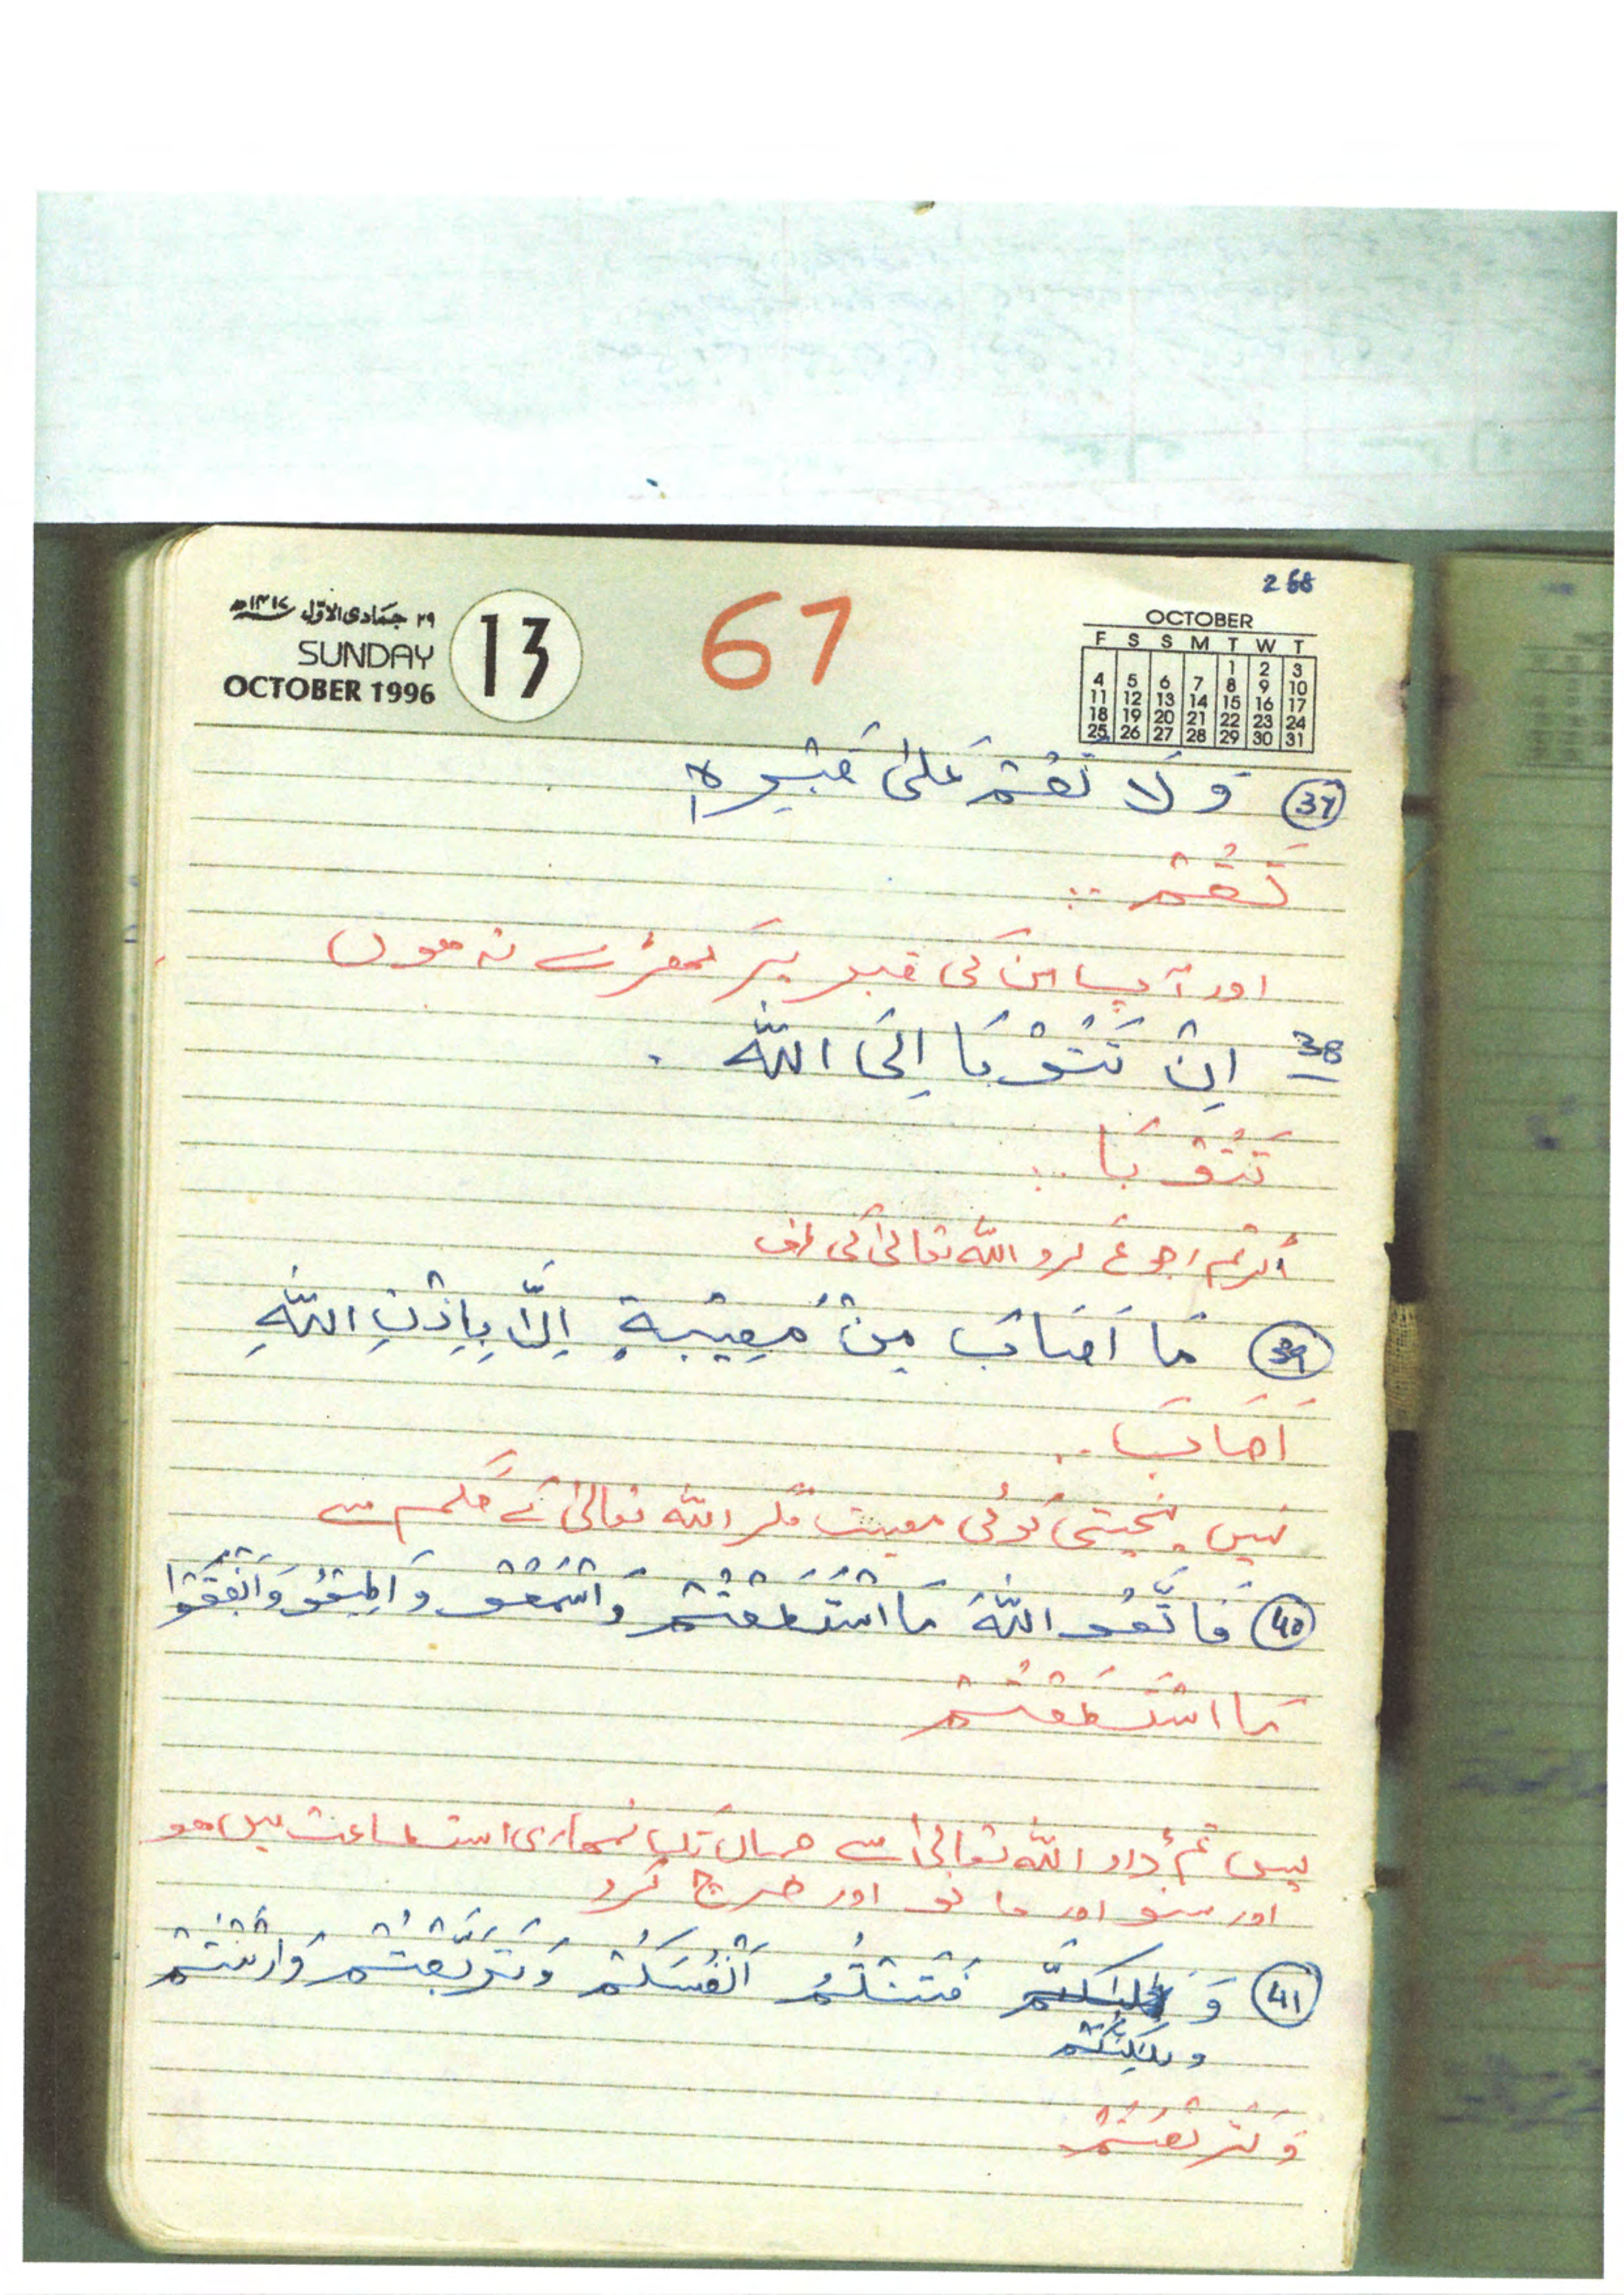 268
۲۹ جمادی الاوّل ۱۴۱۷ھ
SUNDAY
OCTOBER 1996
13
67
OCTOBER
F S S M T W T
1 2 3
4 5 6 7 8 9 10
11 12 13 14 15 16 17
18 19 20 21 22 23 24
25 26 27 28 29 30 31
37 وَلَا تَقُمْ عَلیٰ قَبْرِہٖ
تَقُمْ ..
اور آپ ان کی قبر پر کھڑے نہ ہوں
38 اِنْ تَتُوْبَا اِلَی اللّٰہ .
تَتُوْبَا ..
اگر تم رجوع کرو اللّٰہ تعالیٰ کی طرف
39 مَا اَصَابَ مِنْ مُصِیْبَةٍ اِلَّا بِاِذْنِ اللّٰہِ
اَصَابَ ..
نہیں پہنچتی کوئی مصیبت مگر اللّٰہ تعالیٰ کے حکم سے
40 فَاتَّقُو اللّٰہَ مَا اسْتَطَعْتُمْ وَاسْمَعُوْ وَ اَطِیْعُوْ وَ اَنْفِقُوْا
مَا اسْتَطَعْتُمْ
پس تم ڈرو اللّٰہ تعالیٰ سے جہاں تک تمہاری استطاعت میں ہو
اور سنو اور مانو اور خرچ کرو
41 وَ فَتَنْتُمْ اَنْفُسَکُمْ وَتَرَبَّصْتُمْ وَارْتَبْتُمْ
وَلٰکِنَّکُمْ
وَتَرَبَّصْتُمْ